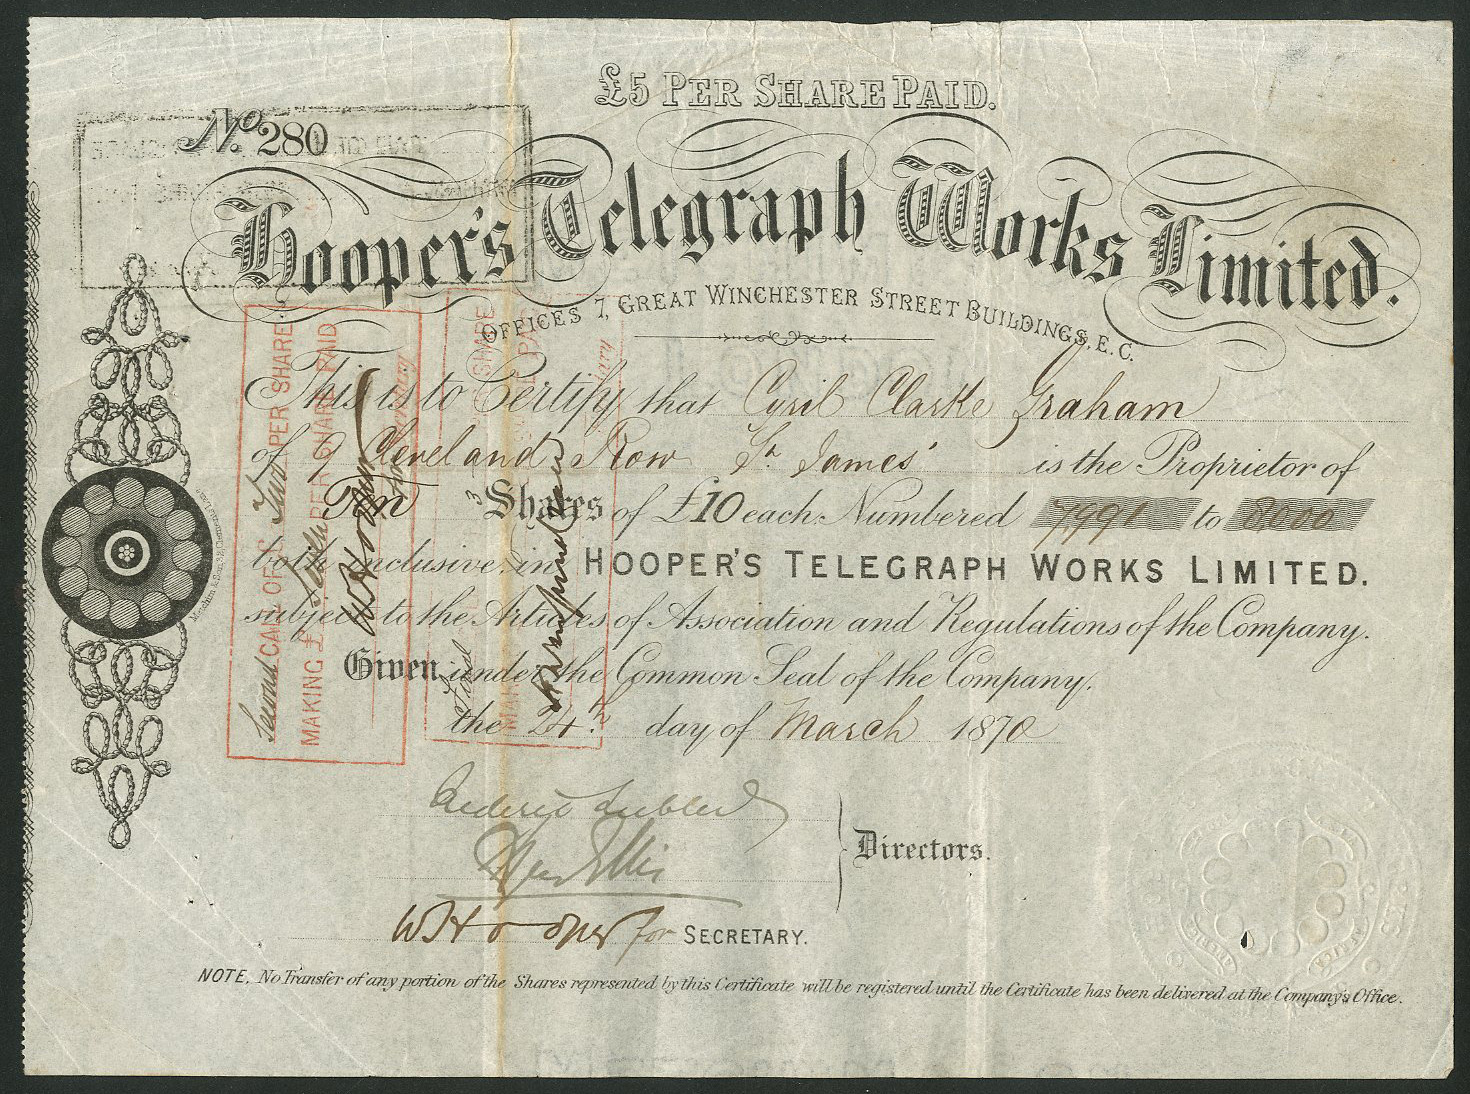 £5 PER SHARE PAID.
No. 280
Hooper's Telegraph Works Limited.
OFFICES 7, GREAT WINCHESTER STREET BUILDINGS, E.C.
This is to Certify that Cyril Clarke Graham
of 9 Cleveland Row St. James' is the Proprietor of
Ten Shares of £10 each Numbered 7991 to 8000
both inclusive in HOOPER'S TELEGRAPH WORKS LIMITED.
subject to the Articles of Association and Regulations of the Company.
Given under the Common Seal of the Company,
the 24th day of March 1870
Directors.
W Hooper for SECRETARY.
NOTE, No Transfer of any portion of the Shares represented by this Certificate will be registered until the Certificate has been delivered at the Company's Office.
Second CALL OF £ Two PER SHARE
MAKING £ PER SHARE PAID
W Hooper for
SECRETARY
SHARE
Final